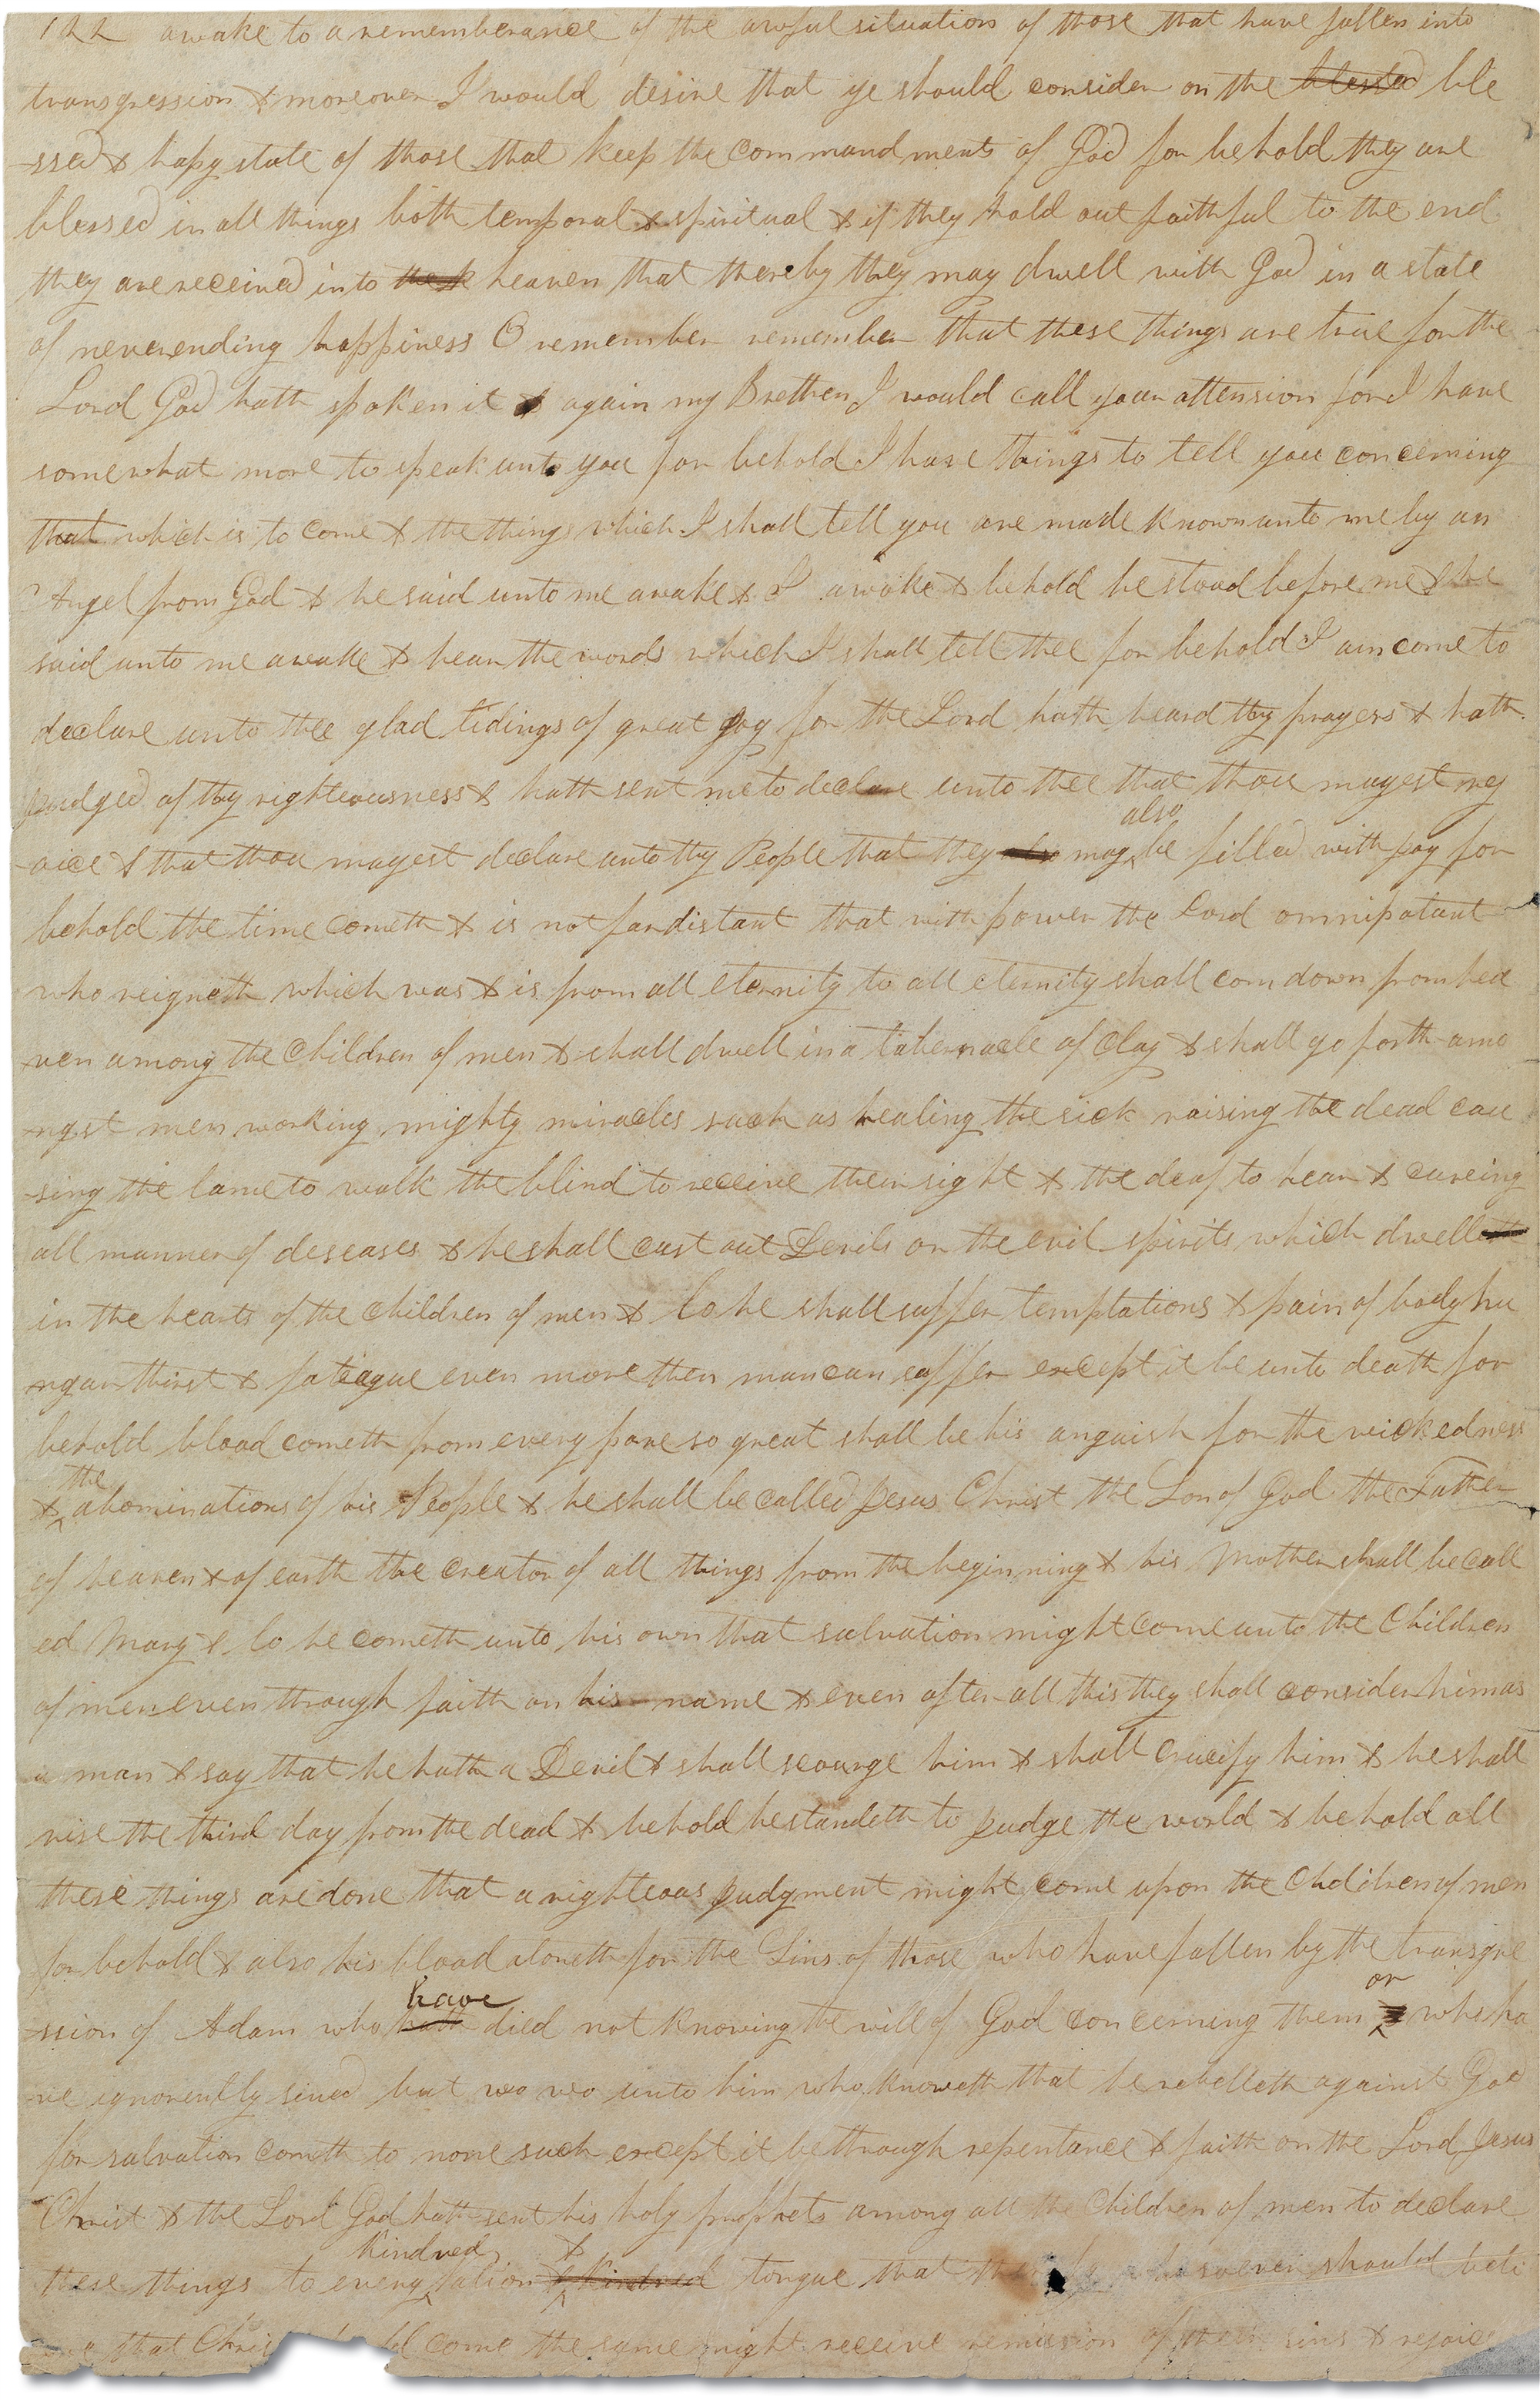 122 awake to a rememberance of the awful situation of those that have fallen into
transgression & moreover I would desire that ye should consider on the blessed ble
-ssed & hapy state of those that keep the commandments of God for behold they are
blessed in all things both temporal & spiritual & if they hold out faithful to the end
they are received into the k heaven that thereby they may dwell with God in a state
of neverending happiness O remember remember that these things are true for the
Lord God hath spoken it & again my Brethen I would call your attension for I have
somewhat more to speak unto you for behold I have things to tell you concerning
that which is to come & the things which I shall tell you are made known unto me by an
Angel from God & he said unto me awake & I awoke & behold he stood before me & he
said unto me awake & hear the words which I shall tell thee for behold I am come to
declare unto thee glad tidings of great joy for the Lord hath heard thy prayers & hath
judged of thy righteousness & hath sent me to declare unto thee that thou mayest rej
-oice & that thou mayest declare unto thy People that they also may also be filled with joy for
behold the time cometh & is not far distant that with power the Lord omnipotant
who reigneth which was & is from all eternity to all eternity shall com down from hea
-ven among the Children of men & shall dwell in a tabernacle of Clay & shall go forth amo
-ngst men working mighty miracles such as healing the sick raising the dead cau
-sing the lame to walk the blind to receive their sight & the deaf to hear & cureing
all manner of deseases & he shall cast out Devils or the evil spirits which dwelleth
in the hearts of the Children of men & lo he shall suffer temptations & pain of body hu
-ngar thirst & fatiague even more then man can suffer except it be unto death for
behold blood cometh from every pore so great shall be his anguish for the wickedness
& the abominations of his People & he shall be called Jesus Christ the Son of God the Father
of heaven & of earth the creator of all things from the beginning & his Mother shall be call
ed Mary & lo he cometh unto his own that salvation might come unto the Children
of men even through faith on his name & even after all this they shall consider him as
a man & say that he hath a Devil & shall scourge him & shall crucify him & he shall
rise the third day from the dead & behold he standeth to judge the world & behold all
these things are done that a righteous judgment might come upon the Children of men
for behold & also his blood atoneth for the Sins of those who have fallen by the transgre
-ssion of Adam who hath have died not knowing the will of God concerning them & or who ha
-ve ignorently sined but wo wo unto him who knoweth that he rebelleth against God
for salvation cometh to none such except it be through repentance & faith on the Lord Jesus
Christ & the Lord God hath sent his holy prophets among all the Children of men to declare
these things to every Kindred Nation & & Kindred tongue that thereby whosoever should beli
that Christ should come the same might receive remission of their sins & rejoice